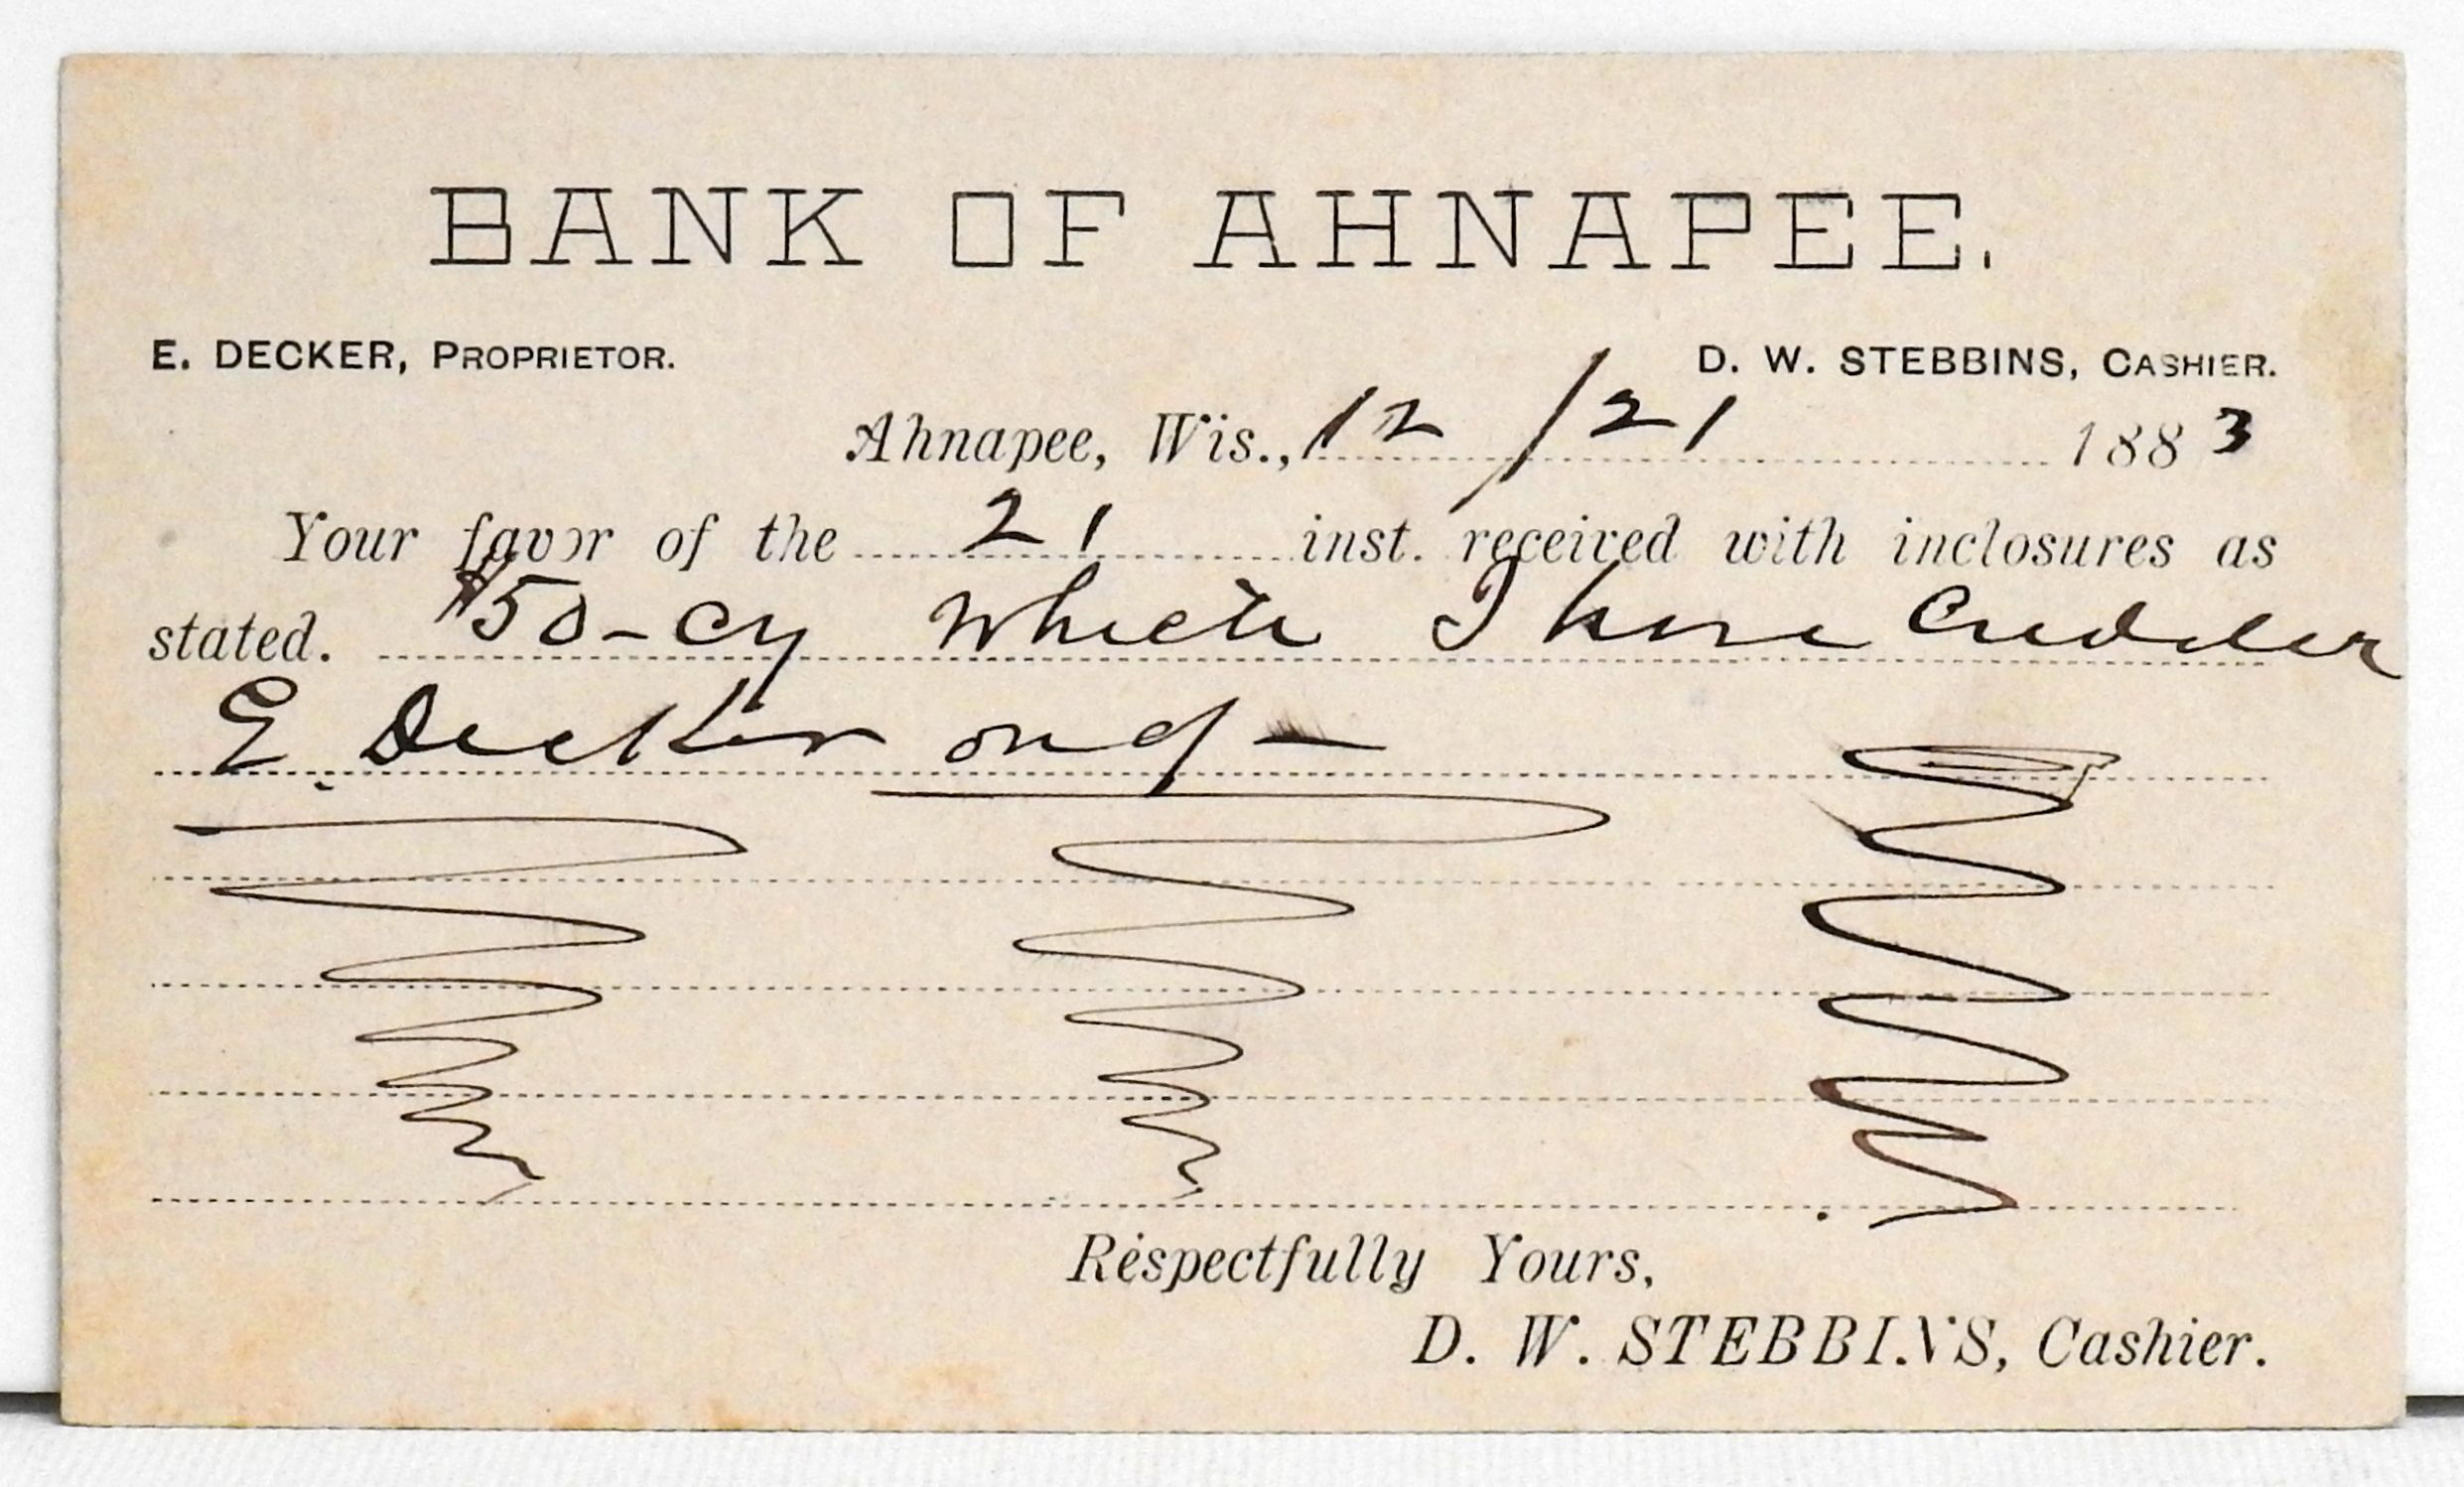 BANK OF AHNAPEE.
E. DECKER, PROPRIETOR. D. W. STEBBINS, CASHIER.
Ahnapee, Wis., 12/21 1883
Your favor of the 21 inst. received with inclosures as
stated. $50- cy which I have Credited
E. Decker
Respectfully Yours,
D. W. STEBBINS, Cashier.